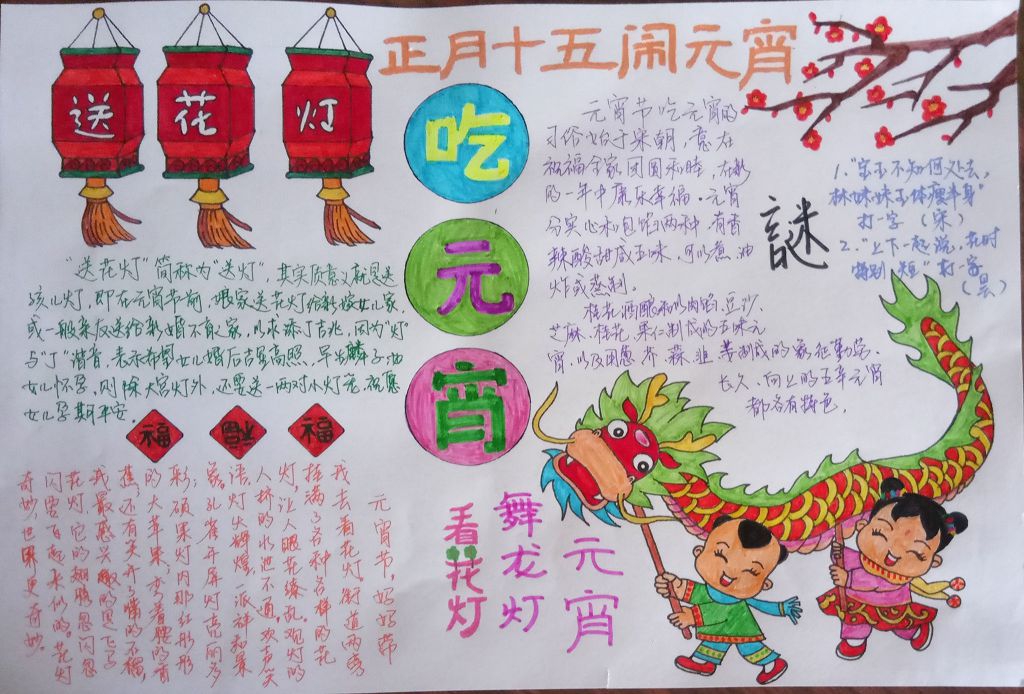 正月十五闹元宵
送花灯
吃
元
宵
"送花灯"简称为"送灯"，其实质意义就是送
孩儿灯，即在元宵节前，娘家送花灯给新嫁女儿家，
或一般亲友送给新婚不育之家，以求添丁吉兆，因为"灯"
与"丁"谐音，表示希望女儿婚后吉星高照，早生麟子，如
女儿怀孕，则除大宫灯外，还要送一两对小灯笼，祝愿
女儿孕期平安。
福
福
福
元宵节吃元宵的
习俗始于宋朝，意在
祝福全家团圆和睦，在新
的一年中康乐幸福。元宵
分实心和包馅两种，有香
辣酸甜咸五味，可以煮油
炸或蒸制。
桂花酒酿
豆沙，
芝麻、桂花、果仁制成的五味元
宵，以及用葱芥蒜韭
制成的象征勤劳、
长久、向上的五辛元宵
都各有特色。
谜
1."宝玉不知何处去，
林妹妹玉体瘦半身"
打一字（宋）
2."上下一起说，花时
特别短"打一字
（昙）
元宵节，妈妈带
我去看花灯，街道两旁
挂满了各种各样的花
灯，让人眼花缭乱。观灯的
人挤的水泄不通，欢声笑
语，灯火辉煌，一派祥和景
象，孔雀开屏灯亮丽多
彩；硕果灯内那红彤彤
的大苹果，弯着腰的香
蕉，还有笑开了嘴的石榴，
我最感兴趣的
花灯，它的翅膀忽闪忽
闪要飞起来似的。花灯
奇妙，世界更奇妙。
看花灯
舞龙灯
元宵